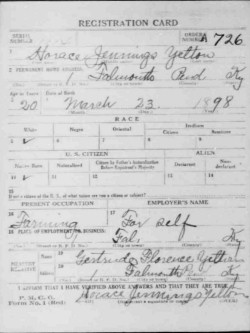 REGISTRATION CARD
SERIAL NUMBER
ORDER NUMBER
A 726
1 Horace Jennings Yelton
2 PERMANENT HOME ADDRESS:
Falmouth Pend Ky
Age in Years
Date of Birth
20 March 23 1898
RACE
White
Negro
Oriental
Indian
Citizen
Noncitizen
5 ✓
U. S. CITIZEN
ALIEN
Native Born
Naturalized
Citizen by Father's Naturalization Before Registrant's Majority
Declarant
Non-declarant
10 ✓
If not a citizen of the U. S., of what nation are you a citizen or subject?
PRESENT OCCUPATION
EMPLOYER'S NAME
Farming
For self
PLACE OF EMPLOYMENT OR BUSINESS:
Fal
Ky
NEAREST RELATIVE
Name
Gertrude Florence Yelton
Address
Falmouth
Ky
I AFFIRM THAT I HAVE VERIFIED ABOVE ANSWERS AND THAT THEY ARE TRUE
P. M. G. O.
Form No. 1 (Red)
Horace Jennings Yelton